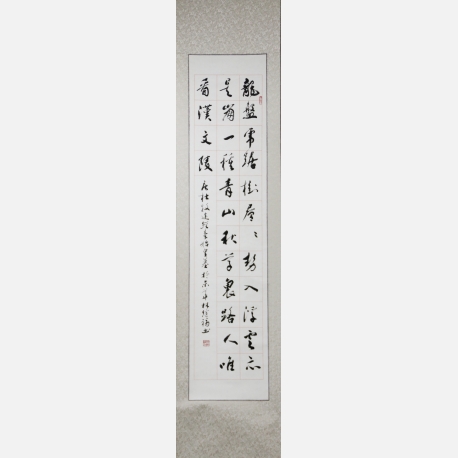 龍盤虎踞樹層〻勢入浮雲亦
是崩一種青山秋草裏路人唯
漢文陵